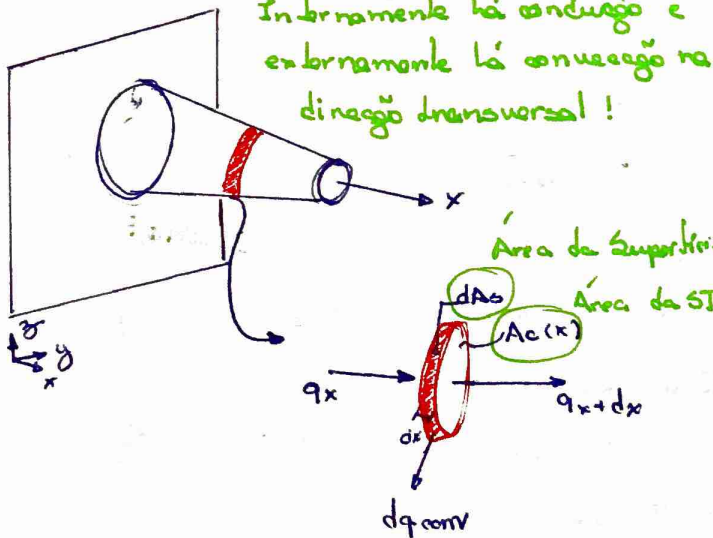 Internamente há condução e
externamente há convecção na
direção transversal!
x
Área da Superfíci
dAs
Área da ST
Ac(x)
z
y
x
qx
qx+dx
dx
dqconv